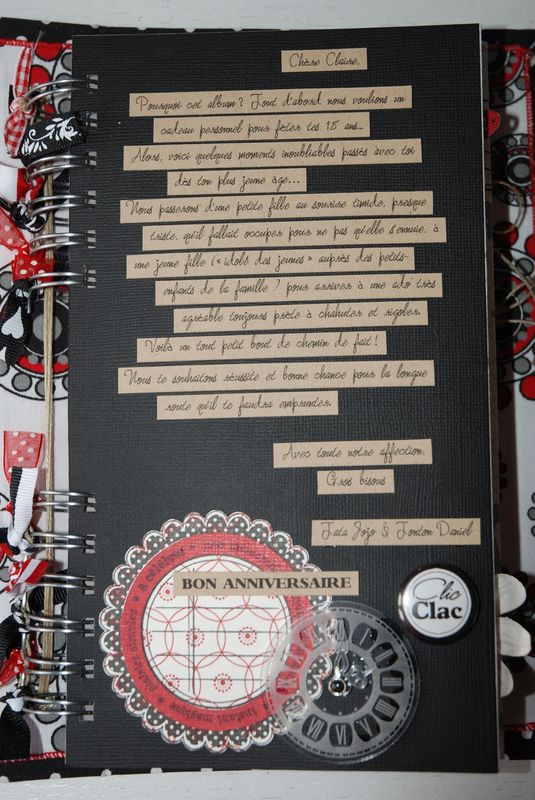 Chère Claire,
Pourquoi cet album ? Tout d'abord nous voulions un
cadeau personnel pour fêter tes 18 ans...
Alors, voici quelques moments inoubliables passés avec toi
dès ton plus jeune âge...
Nous passerons d'une petite fille au sourire timide, presque
triste, qu'il fallait occuper pour ne pas qu'elle s'ennuie, à
une jeune fille (« idole des jeunes » auprès des petits-
enfants de la famille ) pour arriver à une ado très
agréable toujours prête à chahuter et rigoler.
Voilà un tout petit bout de chemin de fait !
Nous te souhaitons réussite et bonne chance pour la longue
route qu'il te faudra emprunter.
Avec toute notre affection.
Gros bisous
Tata Jojo & Tonton Daniel
à célébrer
BON ANNIVERSAIRE
plaisirs simples
instant magique
Clic
Clac